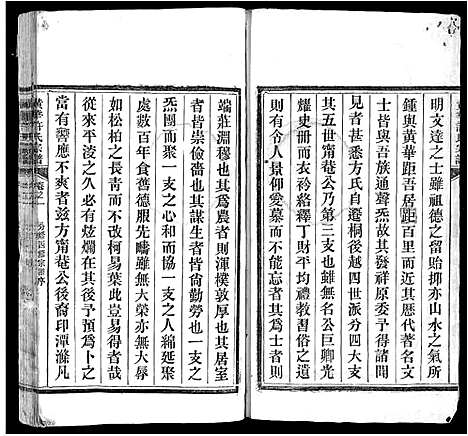 明文達之士雖祖德之留貽抑亦山水之氣所
鍾與黃華距吾居距百里而近其歷代之
士皆與吾族通聲炁故其發祥原委予得諸聞
見者甚悉方氏自遷桐後越四世派分四大支
其公五世甯菴公乃第三支也雖無名公巨卿光
耀史冊而衣衿絡繹丁財平均禮教習俗之遺
則有令人景仰愛慕而不能忘者其為士者則
端莊淵穆也其為農者則渾樸敦厚也其居室
者皆崇儉也其謀生者皆尚勤勞也一支之
炁團而一支之心和而協一支之人綿延聚
處數百年食舊德服先疇雖無大榮亦無大辱
如松柏之長青不改柯易葉此豈易得者哉
從來平淡之久必有炫爛在其後予預為卜之
當有響應不爽者茲方甯菴公後裔印潭滌凡
黃華許氏宗譜